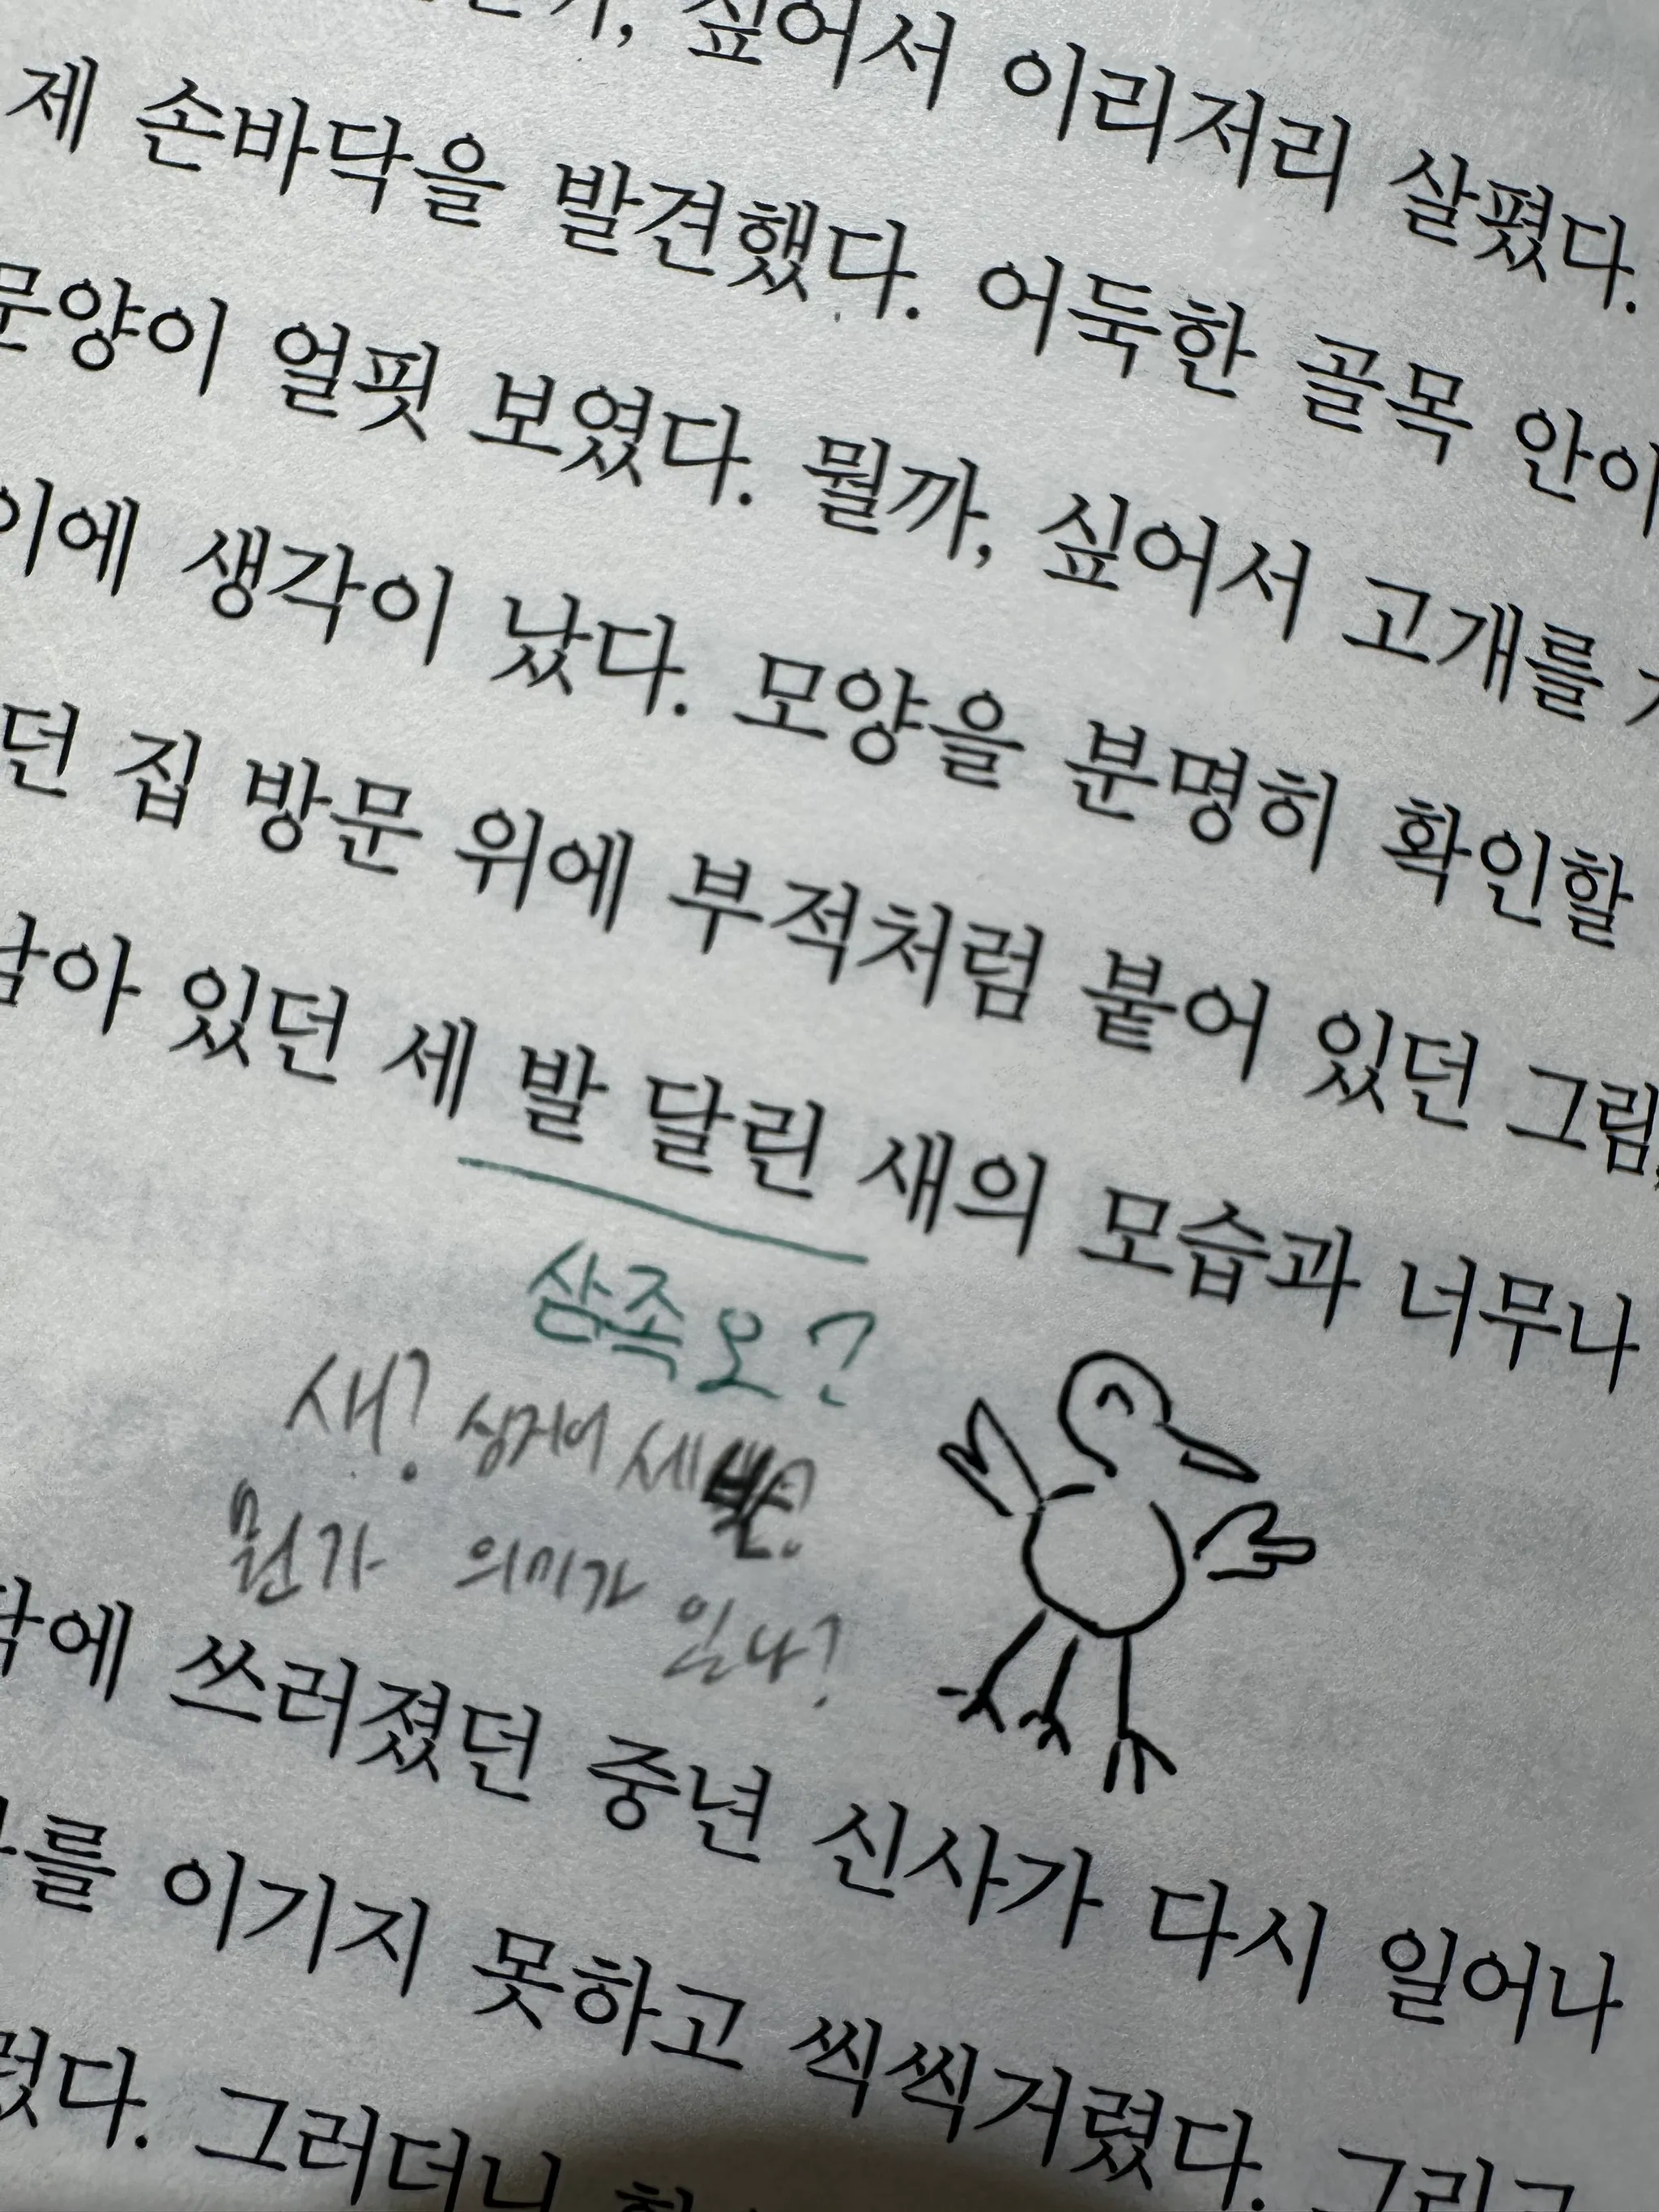 싶어서 이리저리 살폈다.
제 손바닥을 발견했다. 어둑한 골목 안이
문양이 얼핏 보였다. 뭘까, 싶어서 고개를
이에 생각이 났다. 모양을 분명히 확인할
던 집 방문 위에 부적처럼 붙어 있던 그림,
남아 있던 세 발 달린 새의 모습과 너무나
삼족오?
새? 심지어 세
뭔가 의미가 있나?
에 쓰러졌던 중년 신사가 다시 일어나
를 이기지 못하고 씩씩거렸다. 그리고
렸다. 그러더니